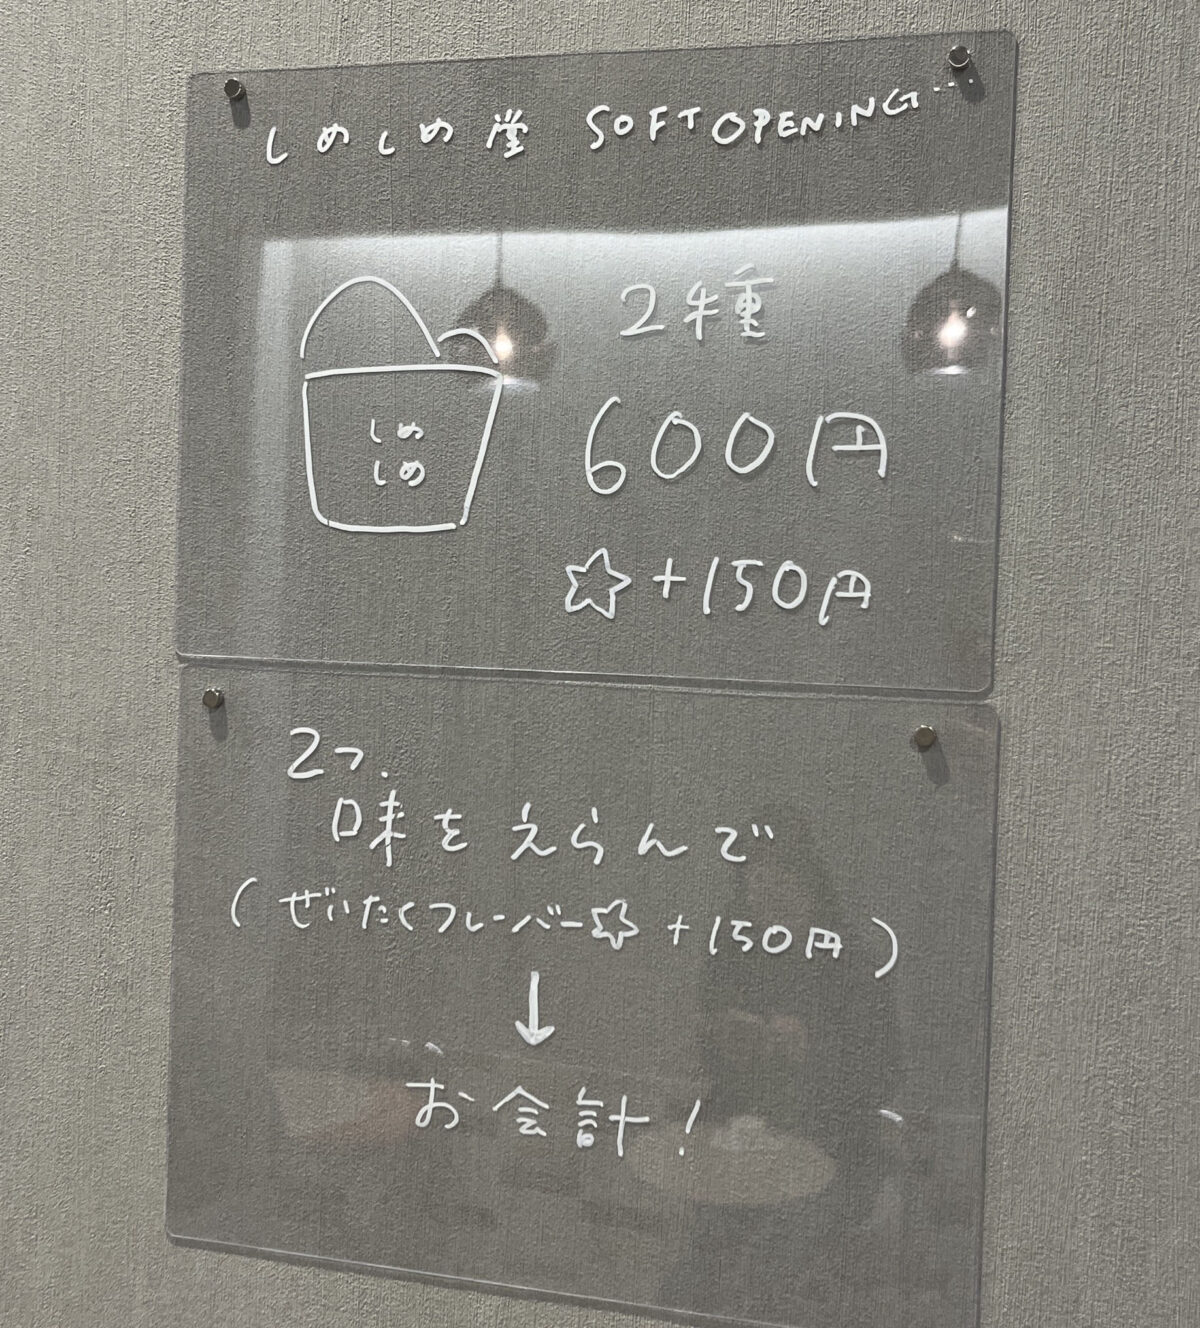 しめしめ堂 SOFT OPENING…
2種
しめ
しめ
600円
☆+150円
2つ.
味をえらんで
(ぜいたくフレーバー☆ +150円)
↓
お会計!